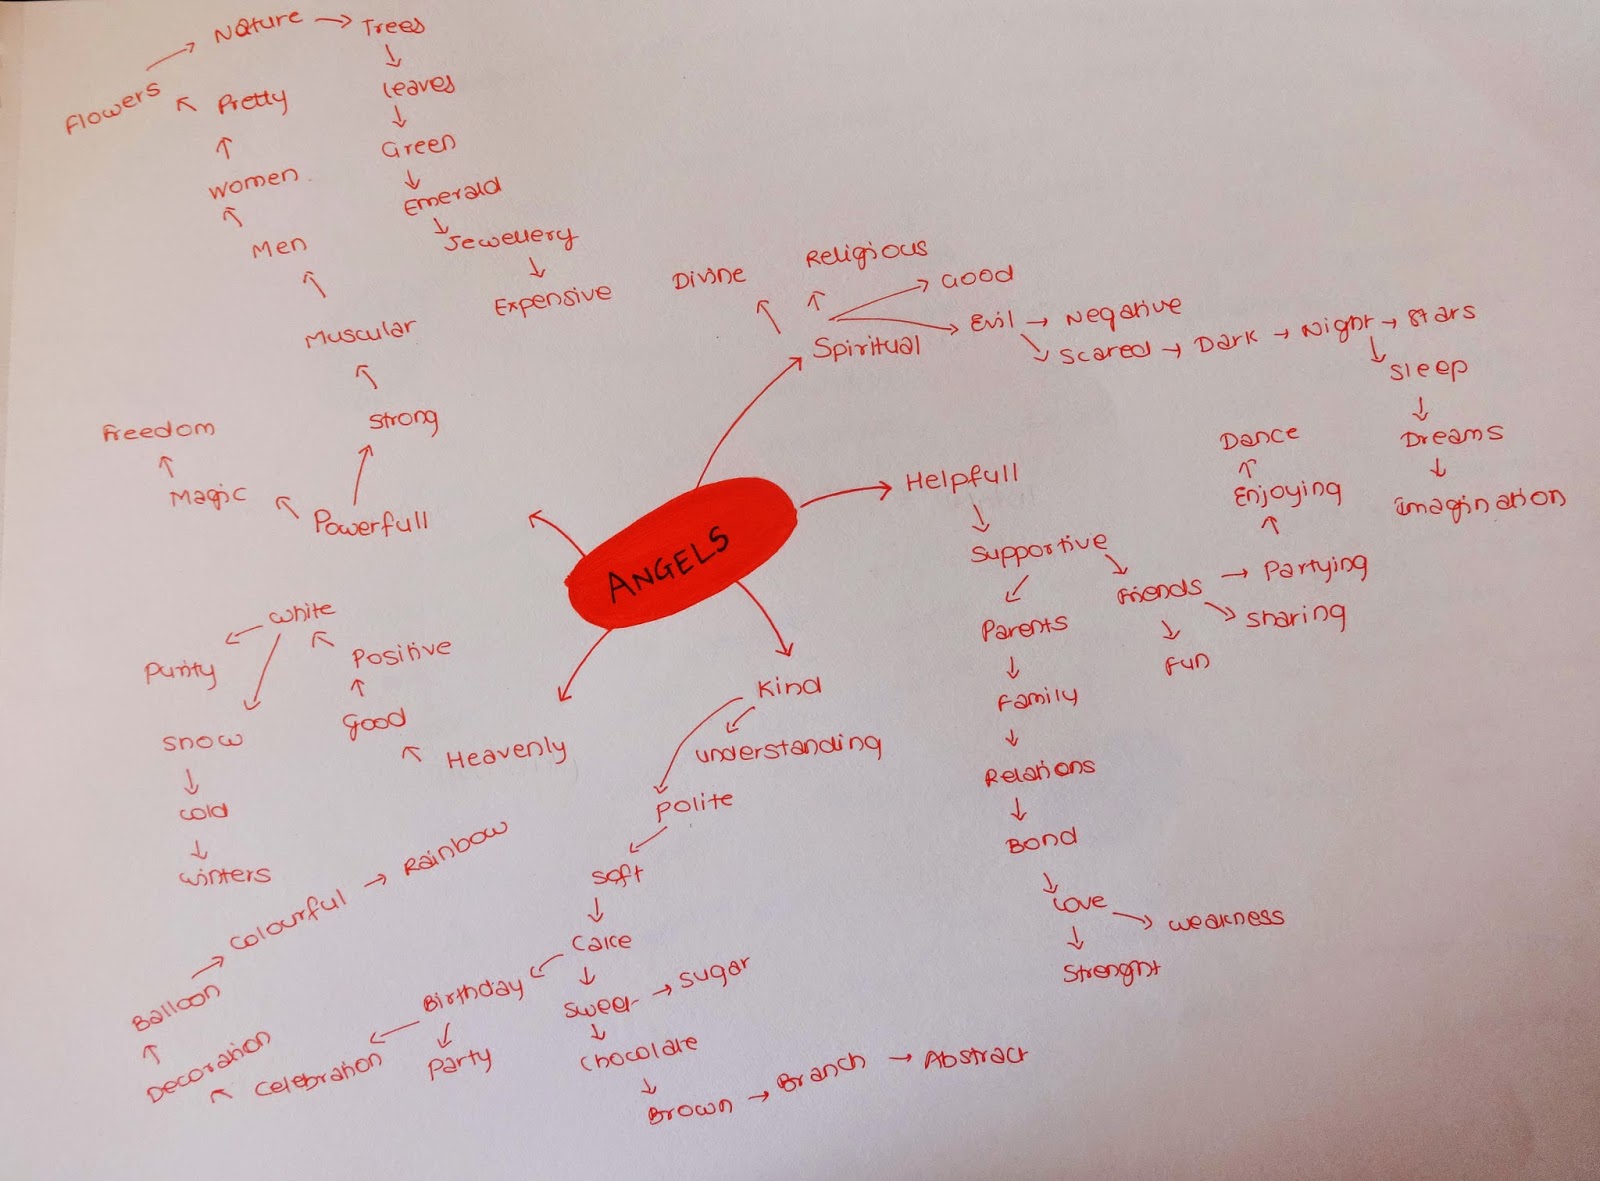 Nature
Trees
Flowers
Pretty
Leaves
Women
Green
Men
Emerald
Jewellery
Expensive
Muscular
Strong
Freedom
Magic
Powerfull
ANGELS
Divine
Religious
Good
Spiritual
Evil
Negative
Scared
Dark
Night
Stars
Sleep
Dreams
Imagination
Helpfull
Supportive
Friends
Partying
Enjoying
Dance
Sharing
Fun
Parents
Family
Relations
Bond
Love
Weakness
Strenght
Kind
understanding
Polite
Soft
Cake
Sweet
Sugar
Chocolate
Brown
Branch
Abstract
Birthday
Party
Celebration
Decoration
Balloon
Colourful
Rainbow
Heavenly
Good
Positive
White
Purity
Snow
Cold
Winters